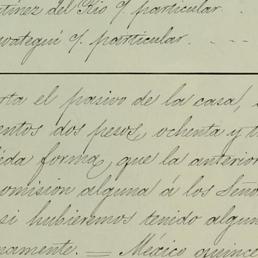 rtínez del Río c/ particular.
vategui c/ particular. . - - -
rta el pasivo de la casa,
entos dos pesos, ochenta y t
ida forma, que la anterior
omision alguna á los Seño
si hubieremos tenido algun
namente. = México quince